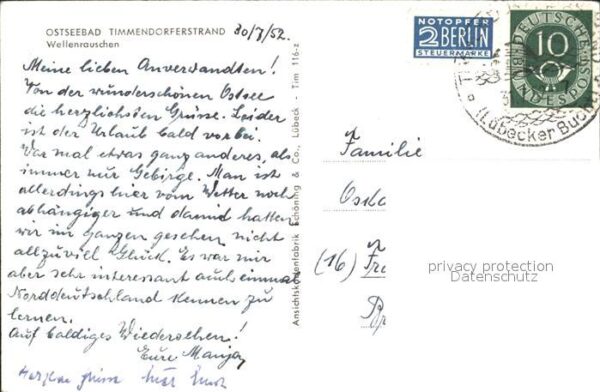 OSTSEEBAD TIMMENDORFERSTRAND
Wellenrauschen
30/7/52.
Meine lieben Anverwandten!
Von der wunderschönen Ostsee
die herzlichsten Grüsse. Leider
ist der Urlaub bald vorbei.
War mal etwas ganz anderes, als
immer nur Gebirge. Man ist
allerdings hier vom Wetter noch
abhängiger und damit hatten
wir im ganzen gesehen nicht
allzuviel Glück. Es war mir
aber sehr interessant auch einmal
Norddeutschland kennen zu
lernen.
Auf baldiges Wiedersehen!
Eure
Herzliche Grüsse
Ansichtskartenfabrik Schöning & Co., Lübeck Tim 116-z
NOTOPFER
2 BERLIN
STEUERMARKE
DEUTSCHE BUNDESPOST
10
(Lübecker Bucht)
Familie
Oska
(16) Fre
privacy protection
Datenschutz